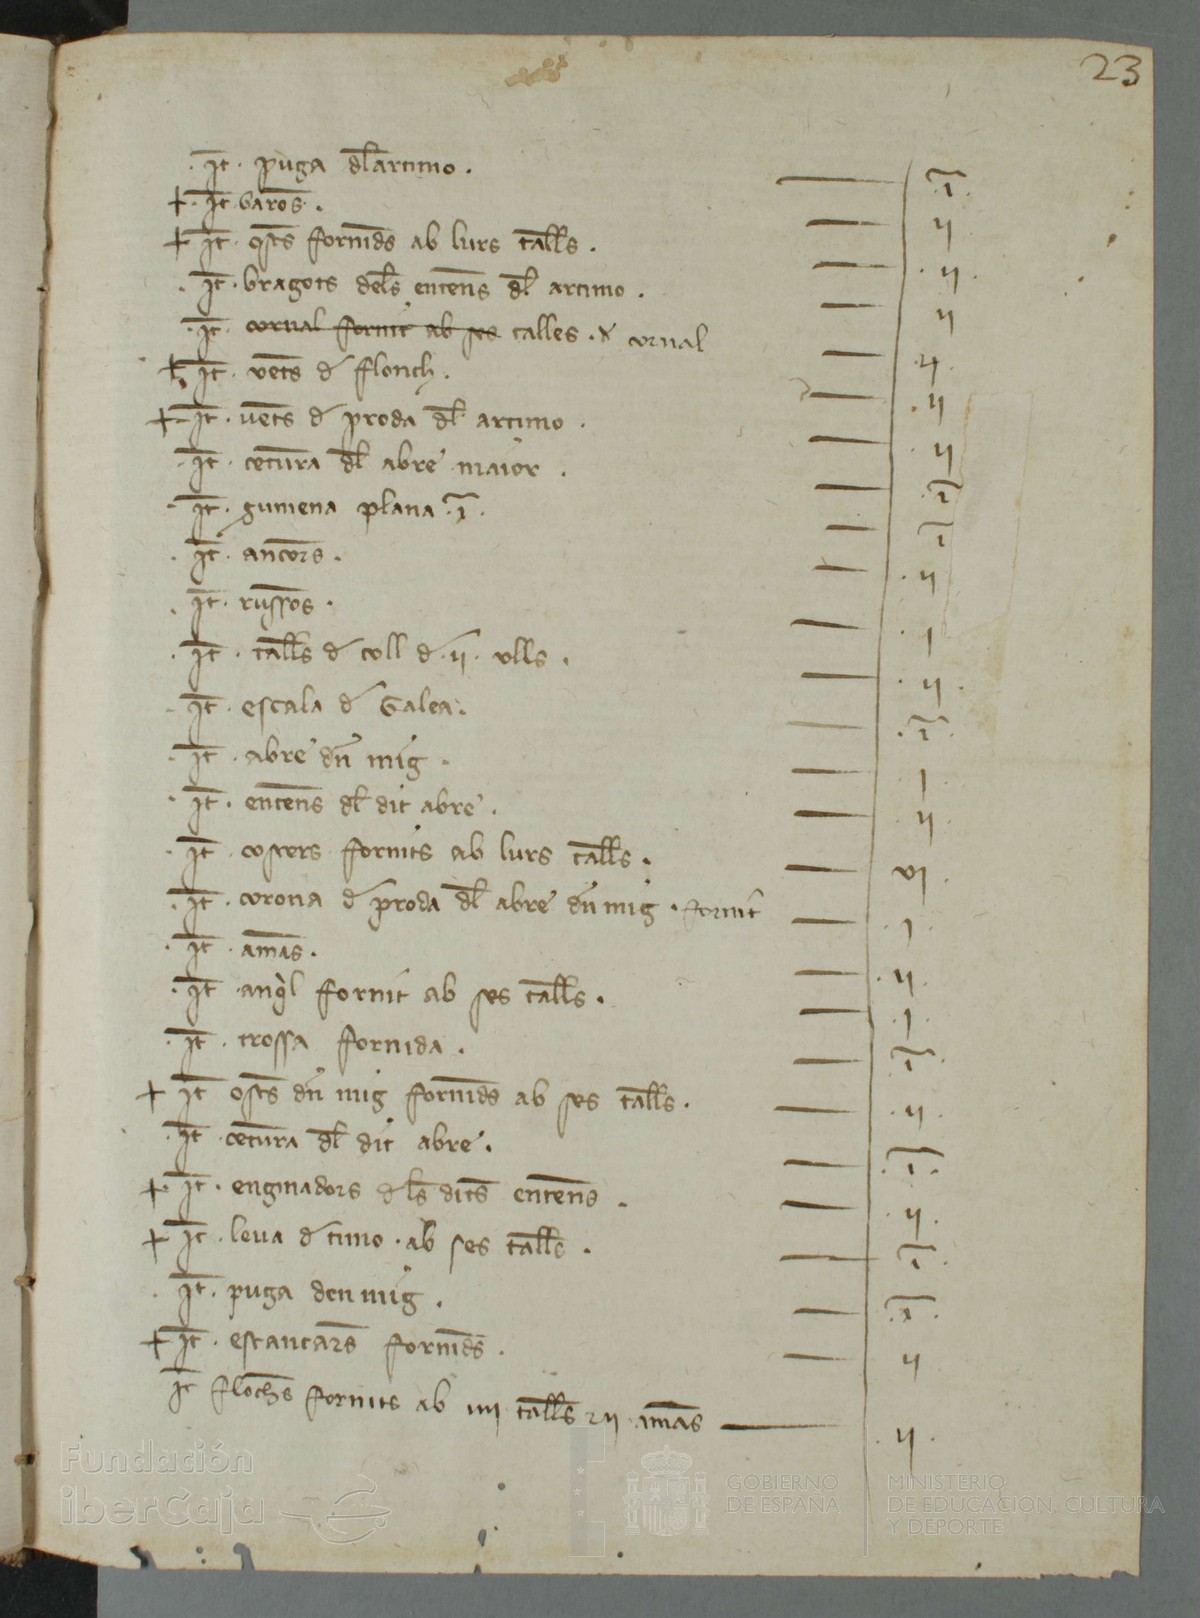 23
·It· puga dl artimo · ĩ
+ ·It· baros · · ij
+ ·It· osts fornids ab lurs talls · · ij ·
·It· bragots dels entens dl artimo · ij
·It· cornal fornit ab ses talles · cornal · 4 ·
+ ·It· vets d flonch · · ij
+ ·It· vets d proda dl artimo · · ij
·It· cetura dl abre maior · ĩ
·It· gumena plana · ĩ · ĩ
·It· ancors · · ij
·It· russos · · j
·It· talls d coll d · ij · ulls · · ij ·
·It· escala d Galea · · ĩ ·
·It· abre dn mig · j
·It· entens dl dit abre · ij
·It· costers fornits ab lurs talls · vj ·
·It· corona d proda dl abre dn mig · fornit · j ·
·It· amas · · ij ·
·It· anql fornit ab ses talls · · j ·
·It· trossa fornida · · ĩ ·
+ It osts dn mig fornids ab ses talls · · ij ·
·It· cetura dl dit abre · · ĩ ·
+ ·It· enginadors dls dits entens · ij ·
+ It · leua d timo · ab ses talls · · ĩ ·
·It· puga den mig · · ĩ ·
+ It · estantars fornids · ij
It flochs fornits ab iiij talls 2 ij amas · ij ·
Fundación
iberCaja
GOBIERNO
DE ESPAÑA
MINISTERIO
DE EDUCACIÓN, CULTURA
Y DEPORTE